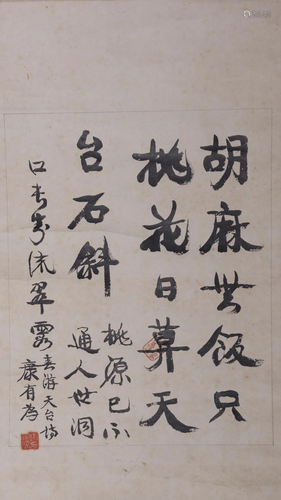 胡麻無飯只
桃花日暮天
台石斜
桃源已不
通人世洞
口香流翠
春游天台
康有為